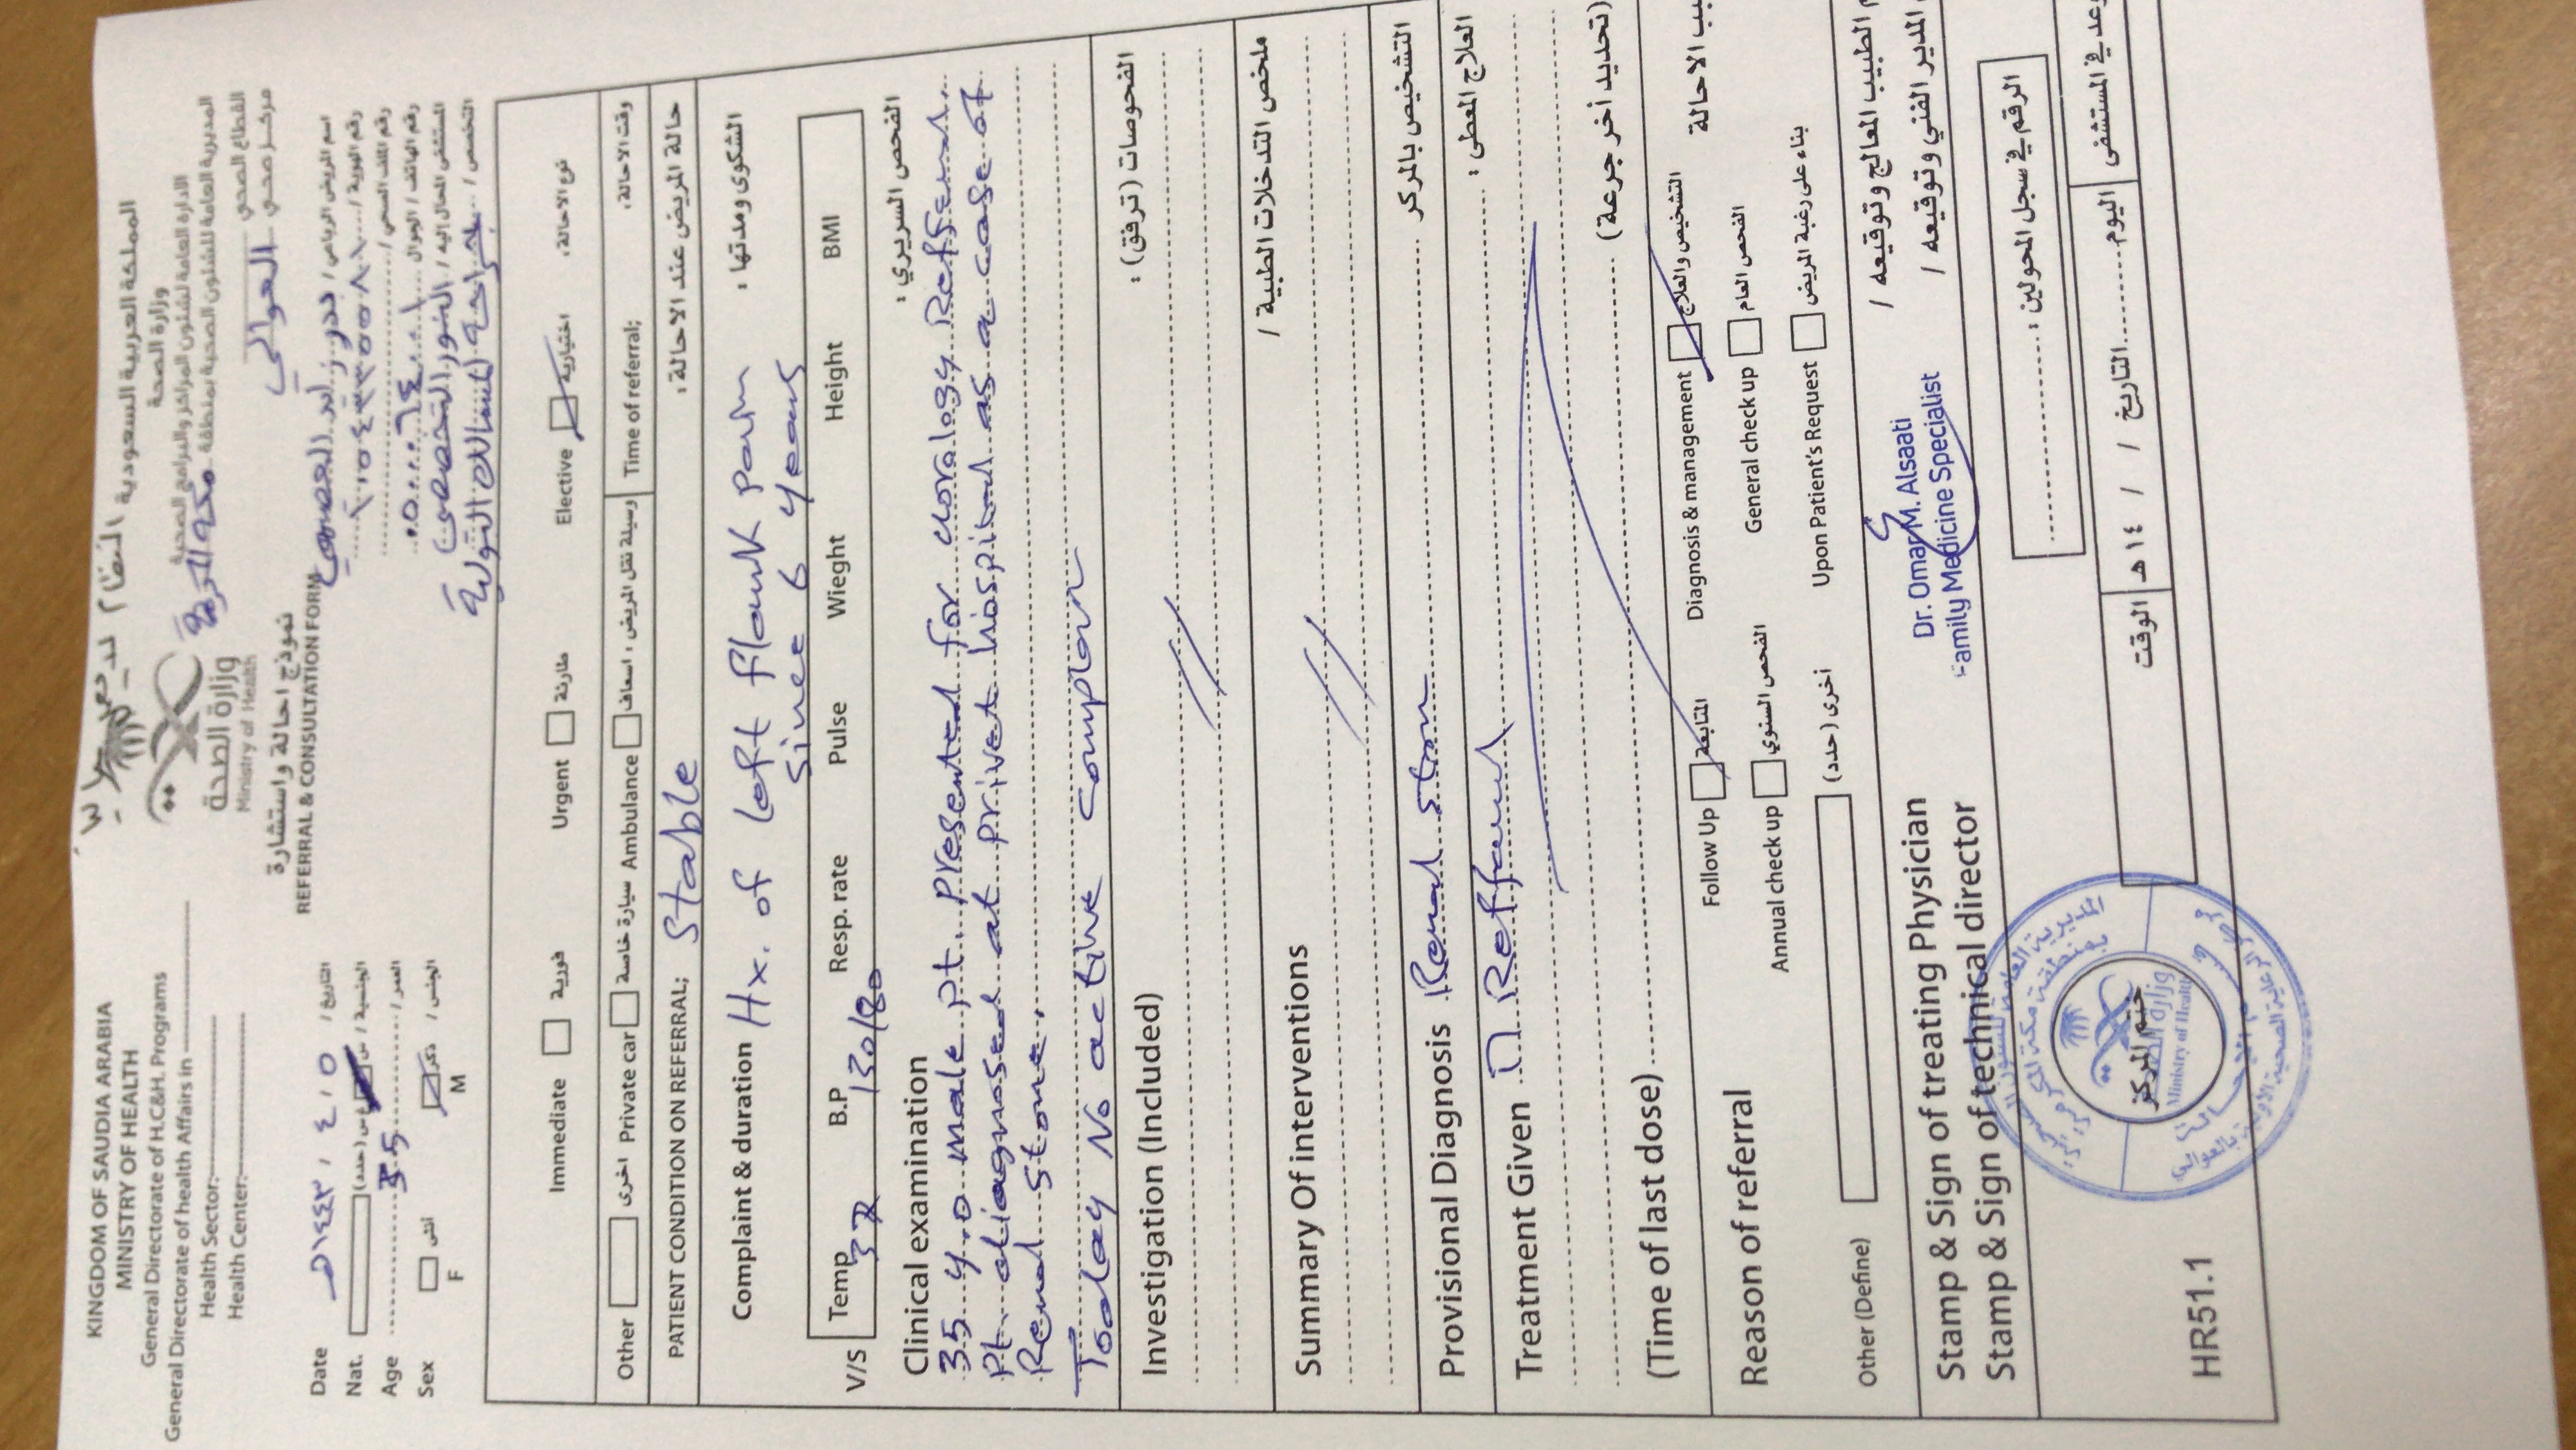 النظام لا يعمل حاليا
KINGDOM OF SAUDIA ARABIA
MINISTRY OF HEALTH
General Directorate of H.C&H. Programs
General Directorate of health Affairs in
Health Sector:
Health Center:
وزارة الصحة
Ministry of Health
المملكة العربية السعودية
وزارة الصحة
الادارة العامة لشئون المراكز والبرامج الصحية
المديرية العامة للشئون الصحية بمنطقة مكة المكرمة
القطاع الصحي
مركز صحي العوالي
نموذج احالة واستشارة
REFERRAL & CONSULTATION FORM
Date ٥ / ٤ / ١٤٤٣هـ التاريخ /
Nat. (حدد) غ س س / الجنسية
Age 35 العمر /
Sex أنثى ذكر الجنس /
F M
اسم المريض الرباعي / بدر زايد العصيمي
رقم الهوية / ١٠٥٤٣٣٥٥٨١
رقم الملف الصحي /
رقم الهاتف / الجوال ٠٥٠٠٠٦٤٠٠١
المستشفى المحال إليه / النور التخصصي
التخصص / جراحة المسالك البولية
Immediate فورية Urgent طارئة Elective اختيارية نوع الاحالة،
Other اخرى Private car سيارة خاصة Ambulance وسيلة نقل المريض ، اسعاف Time of referral; وقت الاحالة،
PATIENT CONDITION ON REFERRAL; Stable حالة المريض عند الاحالة ،
Complaint & duration Hx. of left flank pain الشكوى ومدتها ،
since 6 years
V/S Temp B.P Resp. rate Pulse Wieght Height BMI
37 130/80
Clinical examination الفحص السريري ،
35 y.o male pt. presented for urology Refferal.
Pt. diagnosed at privet hospital as a case of
Renal stone.
Today No active complain
Investigation (Included) الفحوصات (ترفق) ،
Summary Of interventions ملخص التدخلات الطبية /
Provisional Diagnosis Renal ston التشخيص بالمركز
Treatment Given Refferal العلاج المعطى ،
(Time of last dose) (تحديد أخر جرعة)
Reason of referral Follow Up المتابعة Diagnosis & management التشخيص والعلاج بب الاحالة
Annual check up الفحص السنوي General check up الفحص العام
Other (Define) أخرى (حدد) Upon Patient's Request بناء على رغبة المريض
Stamp & Sign of treating Physician م الطبيب المعالج وتوقيعه /
Dr. Omar M. Alsaati
Family Medicine Specialist
Stamp & Sign of technical director المدير الفني وتوقيعه /
الرقم في سجل المحولين ،
وعد في المستشفى اليوم التاريخ / / ١٤ هـ الوقت
المديرية العامة للشئون الصحية
بمنطقة مكة المكرمة
ختم المركز
وزارة الصحة
Ministry of Health
مركز الرعاية الصحية الأولية بالعوالي
HR51.1